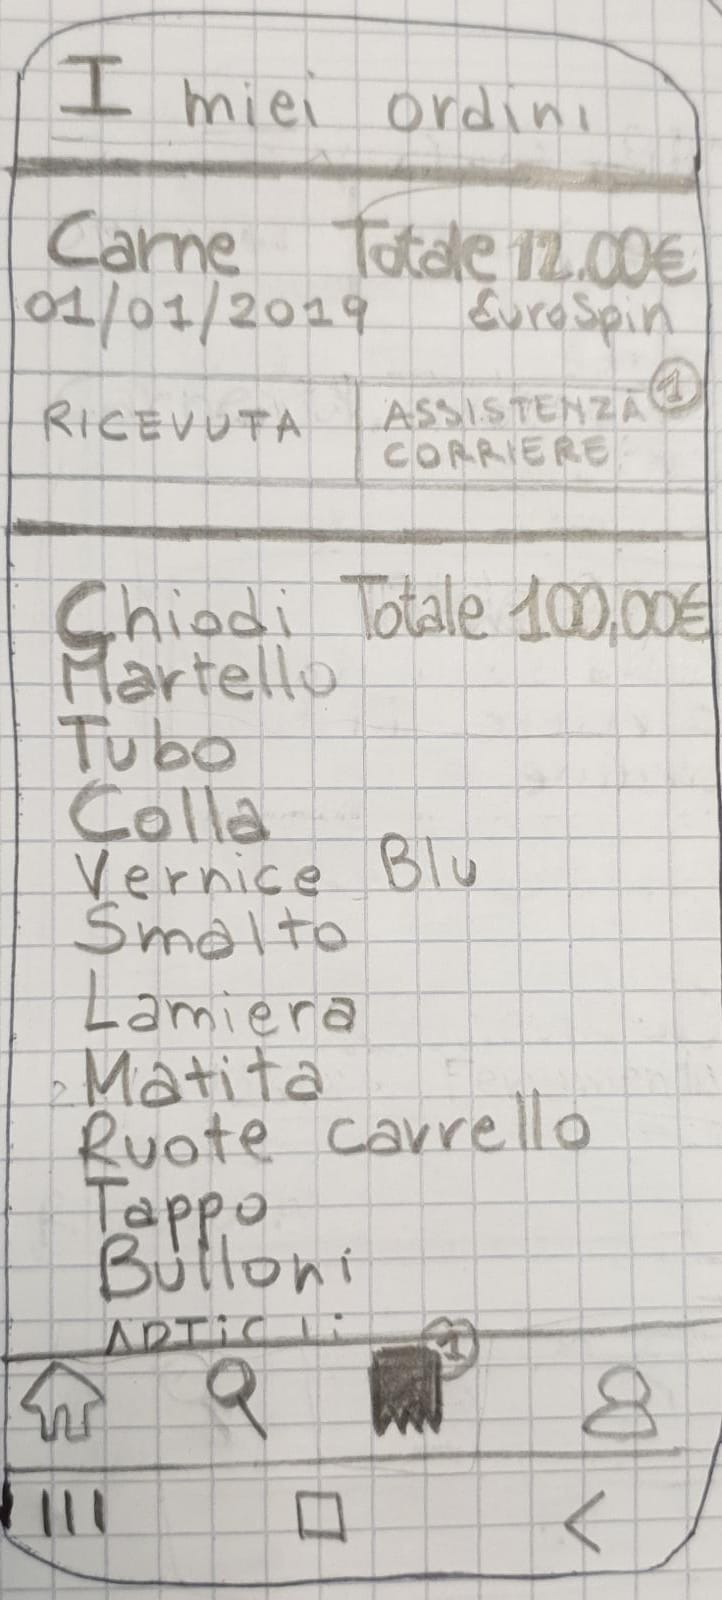 I miei ordini
Carne Totale 12.00€
01/01/2019 EuroSpin
RICEVUTA ASSISTENZA 1
CORRIERE
Chiodi Totale 100,00€
Martello
Tubo
Colla
Vernice Blu
Smalto
Lamiera
Matita
Ruote carrello
Tappo
Bulloni
1